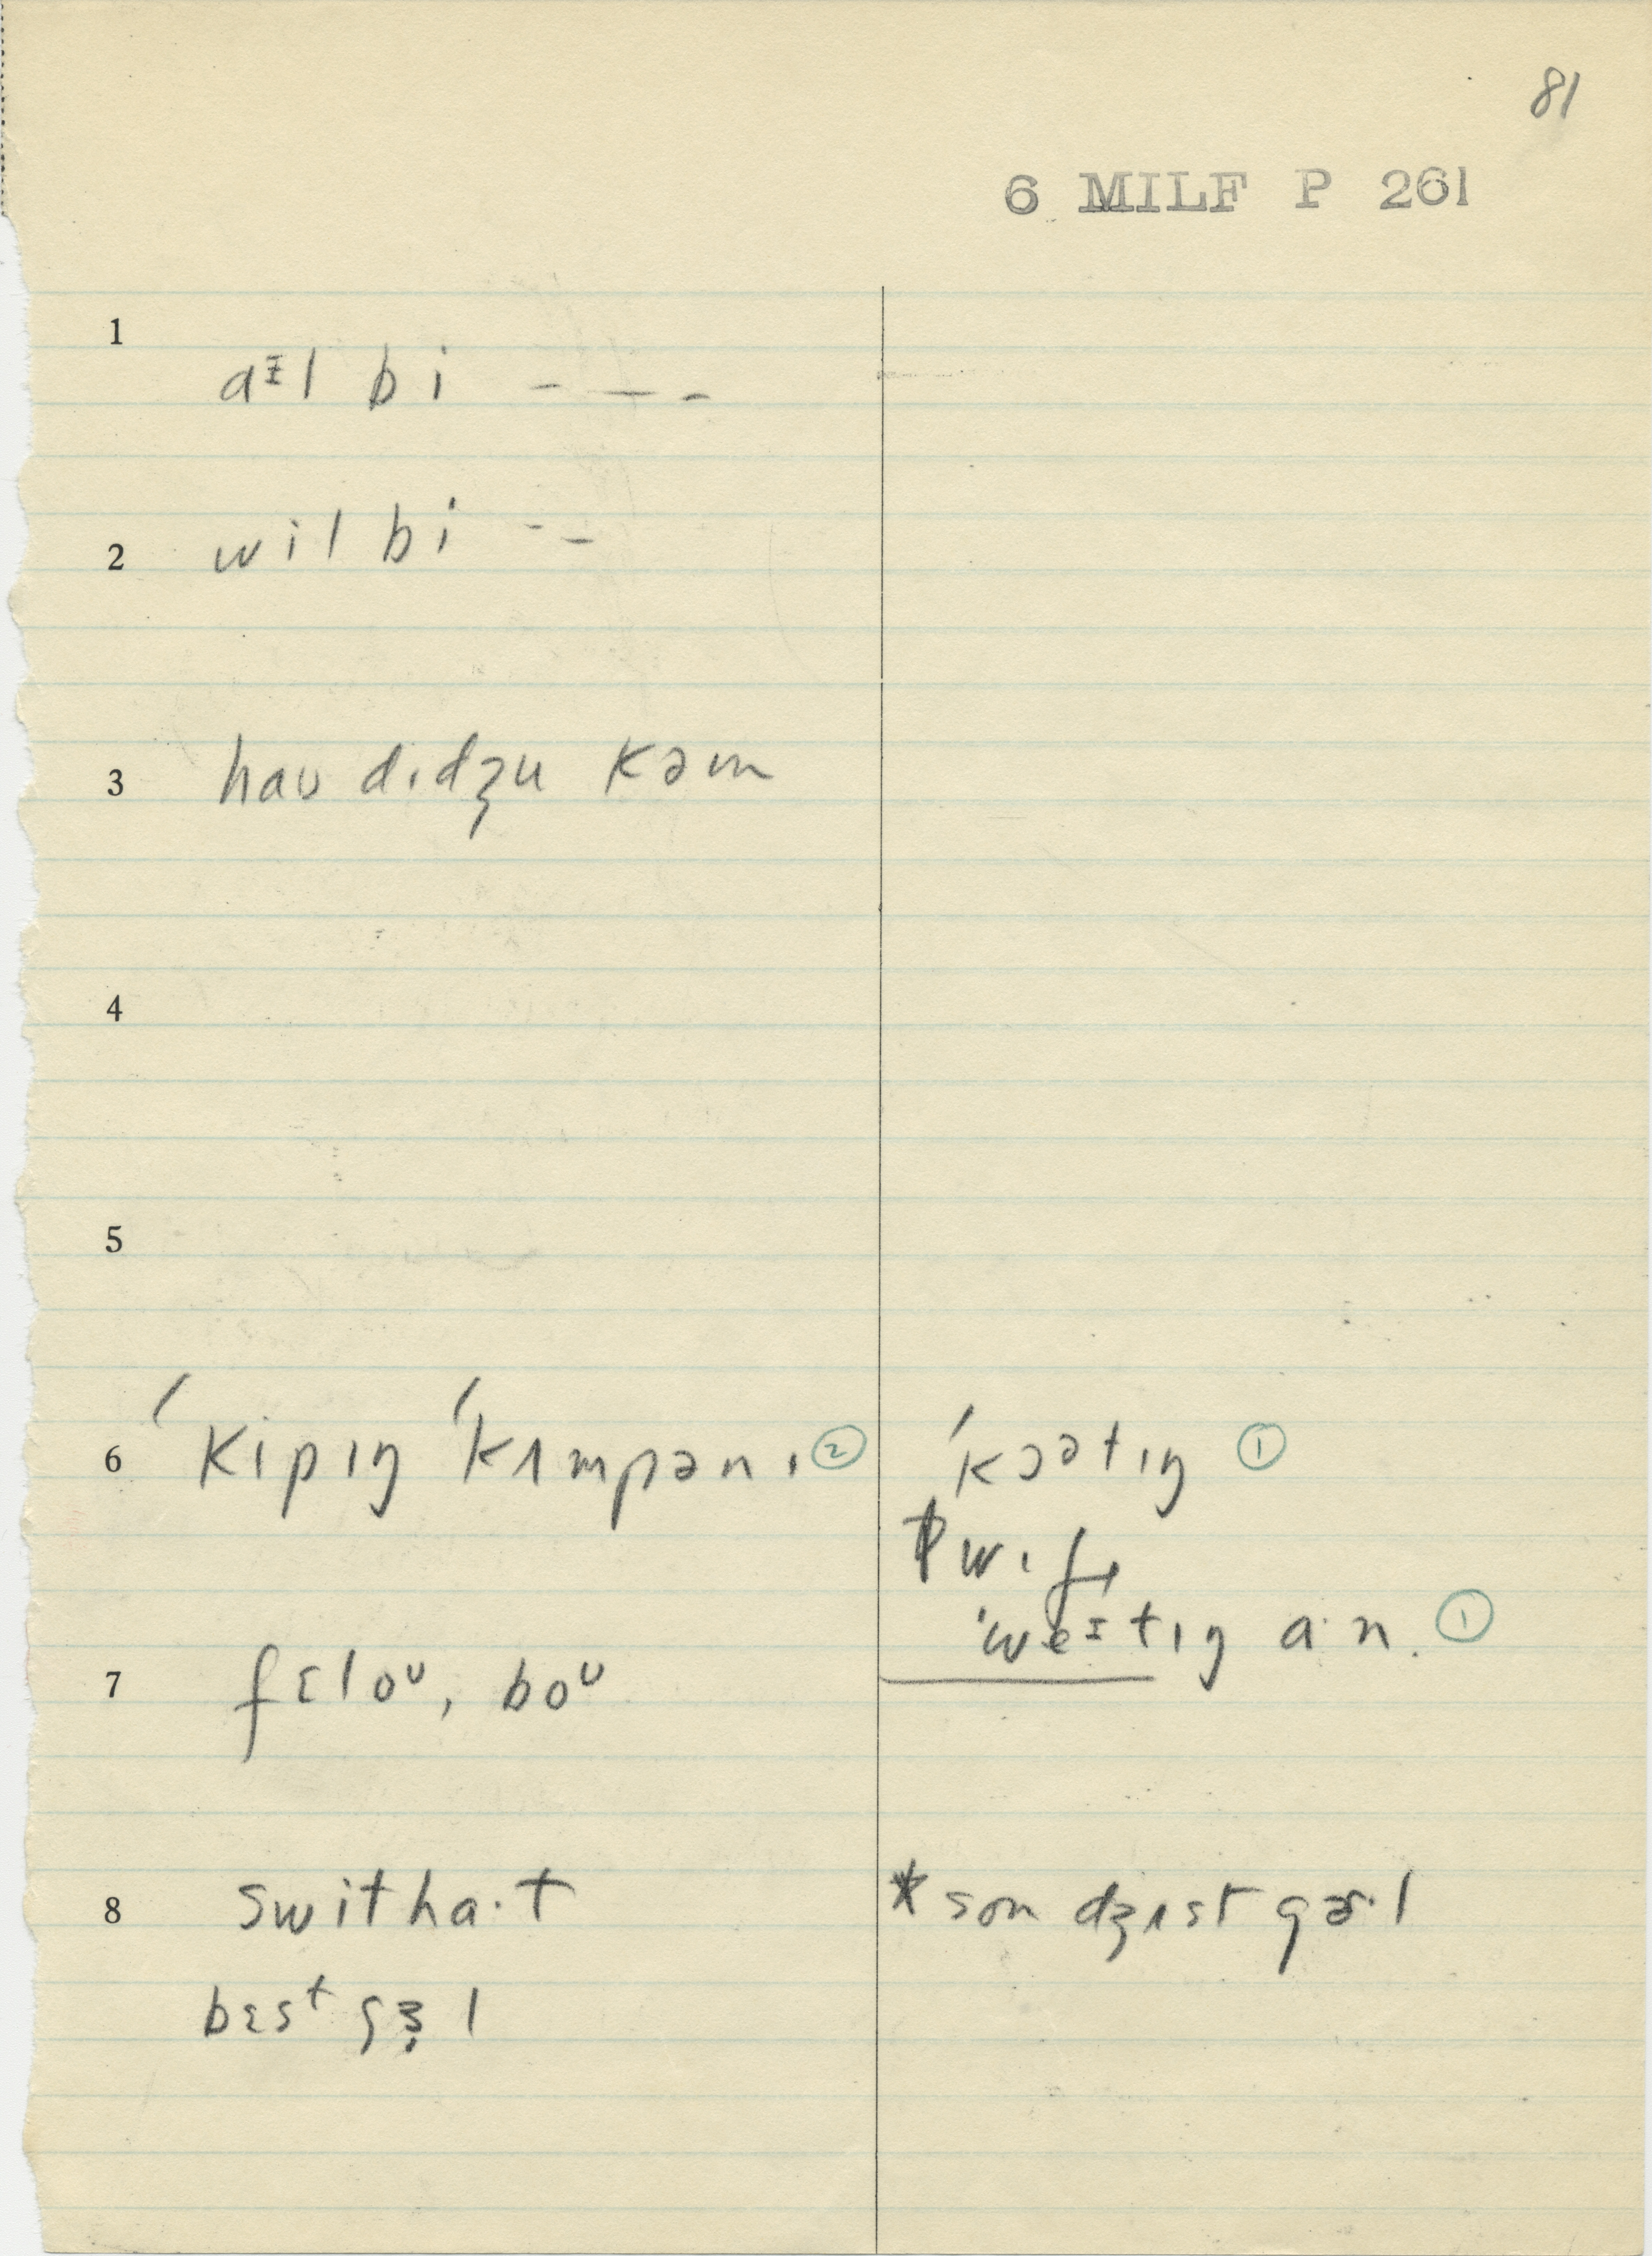 81
6 MILF P 261
1
aᵻl bi - — -
2
wil bi - -
3
haʊ dɪdʒu kəm
4
5
6 ˈkipɪŋ ˈkʌmpənɪ ② ˈkɔətɪŋ ①
wɪf
ˈweᵻtɪŋ a·n. ①
7 fɛloᵁ, boᵁ
8 switha·t *son dʒʌst gɚ·l
bɛst gɜ l